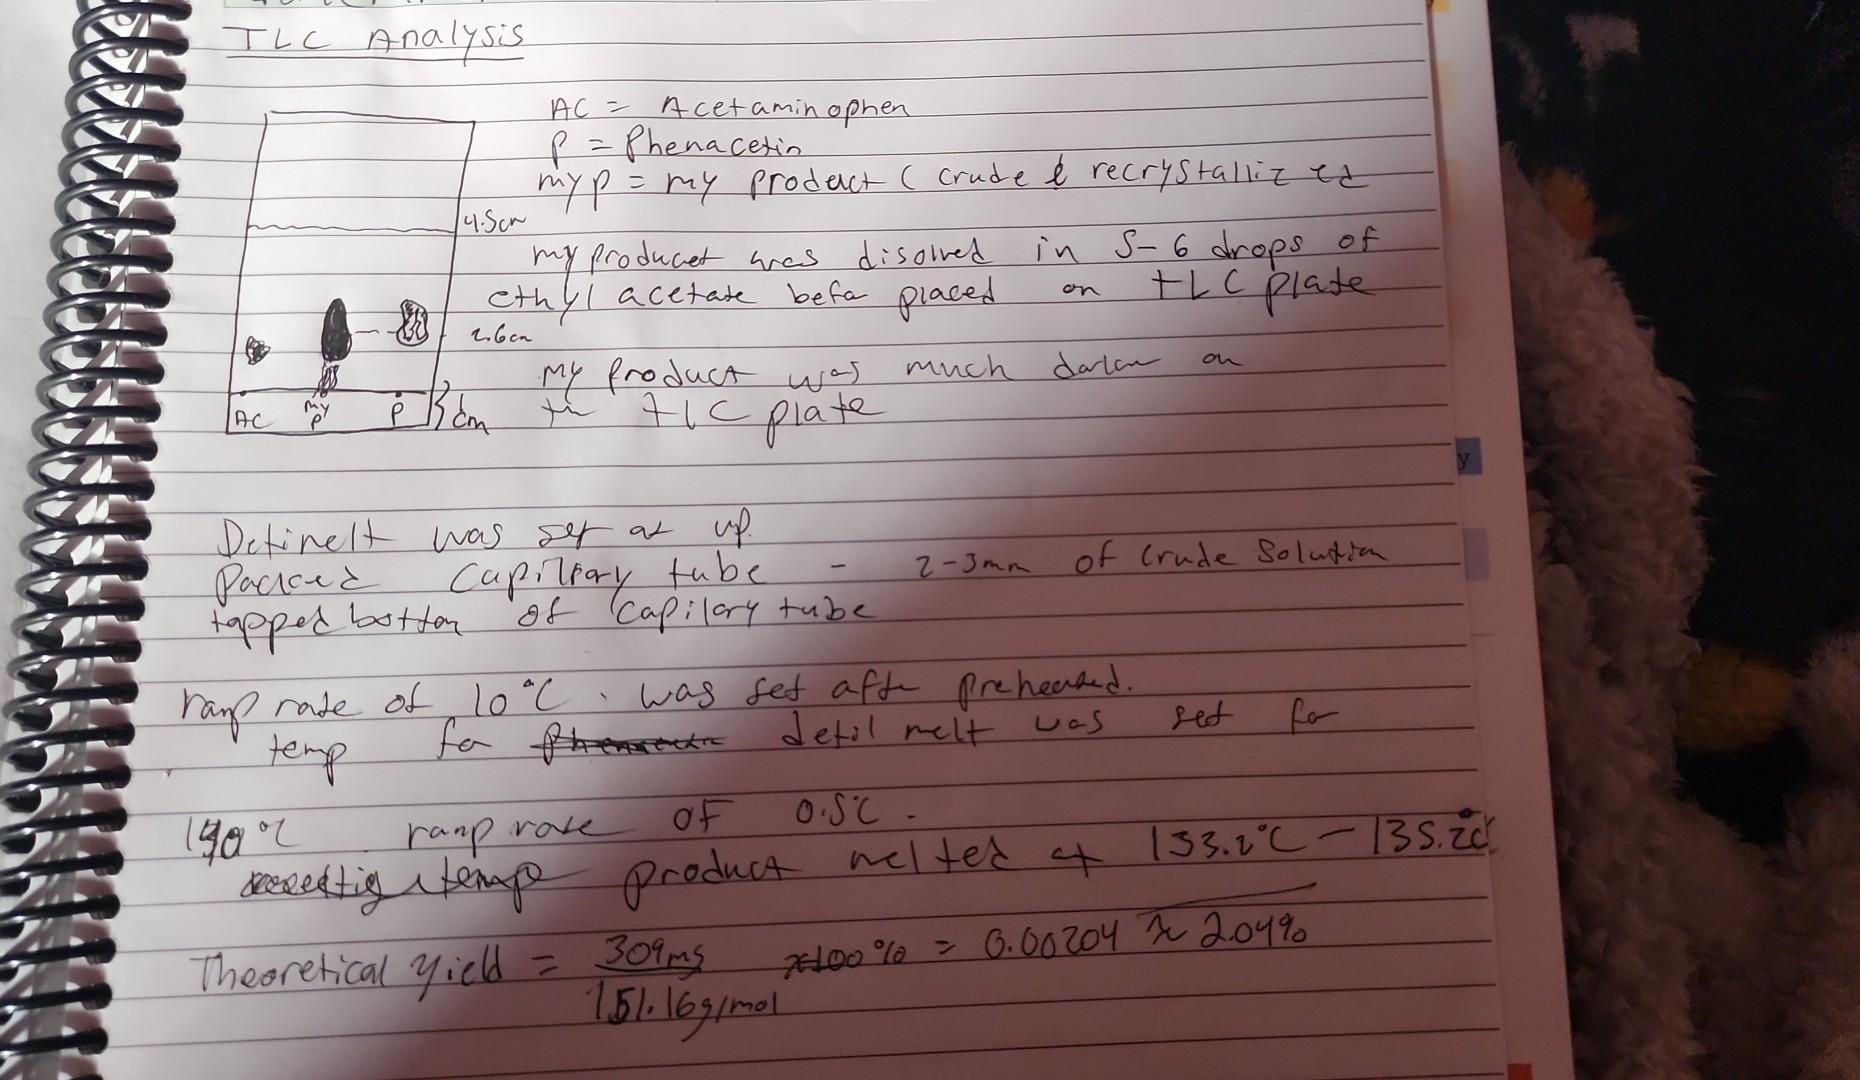 TLC Analysis
AC = Acetaminophen
P = Phenacetin
myp = my product ( crude & recrystallized
4.5cm
my producet was disolved in 5-6 drops of
ethyl acetate befor placed on tLC plate
2.6cm
My product was much darker on
the tLC plate
AC my P P cm
was set at up.
Packed Capillary tube - 2-3mm of Crude Solution
tapped bottom of Capilary tube
ramp rate of 10°C . was set after preheated.
temp for melt was set for
°C ramp rate of 0.5°C .
temp product melted at 133.2°C - 135.2°C
Theoretical Yield = 309mg x100% = 0.00204 ≈ 2.04%
151.16g/mol